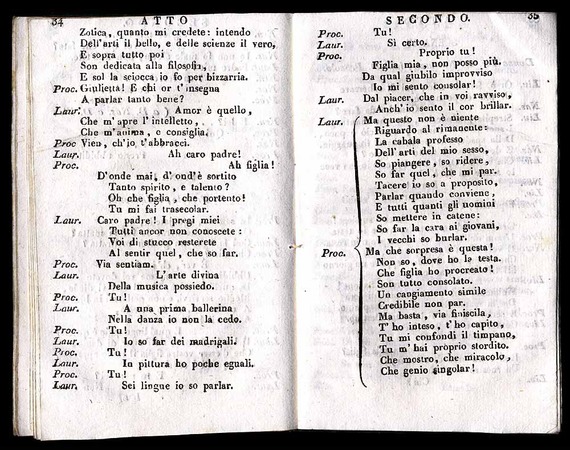 34 ATTO
Zotica, quanto mi credete: intendo
Dell'arti il bello, e delle scienze il vero,
E sopra tutto poi
Son dedicata alla filosofia,
E sol la sciocca io fo per bizzarria.
Proc. Giulietta! E chi or t'insegna
A parlar tanto bene?
Laur. Amor è quello,
Che m'apre l'intelletto,
Che m'anima, e consiglia.
Proc Vien, ch'io t'abbracci.
Laur. Ah caro padre!
Proc. Ah figlia!
D'onde mai, d'ond'è sortito
Tanto spirito, e talento?
Oh che figlia, che portento!
Tu mi fai trasecolar.
Laur. Caro padre! I pregi miei
Tutti ancor non conoscete:
Voi di stucco resterete
Al sentir quel, che so far.
Proc. Via sentiam.
Laur. L'arte divina
Della musica possiedo.
Proc. Tu!
Laur. A una prima ballerina
Nella danza io non la cedo.
Proc. Tu!
Laur. Io so far dei madrigali.
Proc. Tu!
Laur. In pittura ho poche eguali.
Proc. Tu!
Laur. Sei lingue io so parlar.
SECONDO. 35
Proc. Tu!
Laur. Sì certo.
Proc. Proprio tu!
Figlia mia, non posso più.
Da qual giubilo improvviso
Io mi sento consolar!
Laur. Dal piacer, che in voi ravviso,
Anch'io sento il cor brillar.
Laur. Ma questo non è niente
Riguardo al rimanente:
La cabala professo
Dell'arti del mio sesso,
So piangere, so ridere,
So far quel, che mi par.
Tacere io so a proposito,
Parlar quando conviene,
E tutti quanti gli uomini
So mettere in catene:
So far la cara ai giovani,
I vecchi so burlar.
Proc. Ma che sorpresa è questa!
Non so, dove ho la testa.
Che figlia ho procreato!
Son tutto consolato.
Un cangiamento simile
Credibile non par.
Ma basta, via finiscila,
T'ho inteso, t'ho capito,
Tu mi confondi il timpano,
Tu m'hai proprio stordito.
Che mostro, che miracolo,
Che genio singolar!